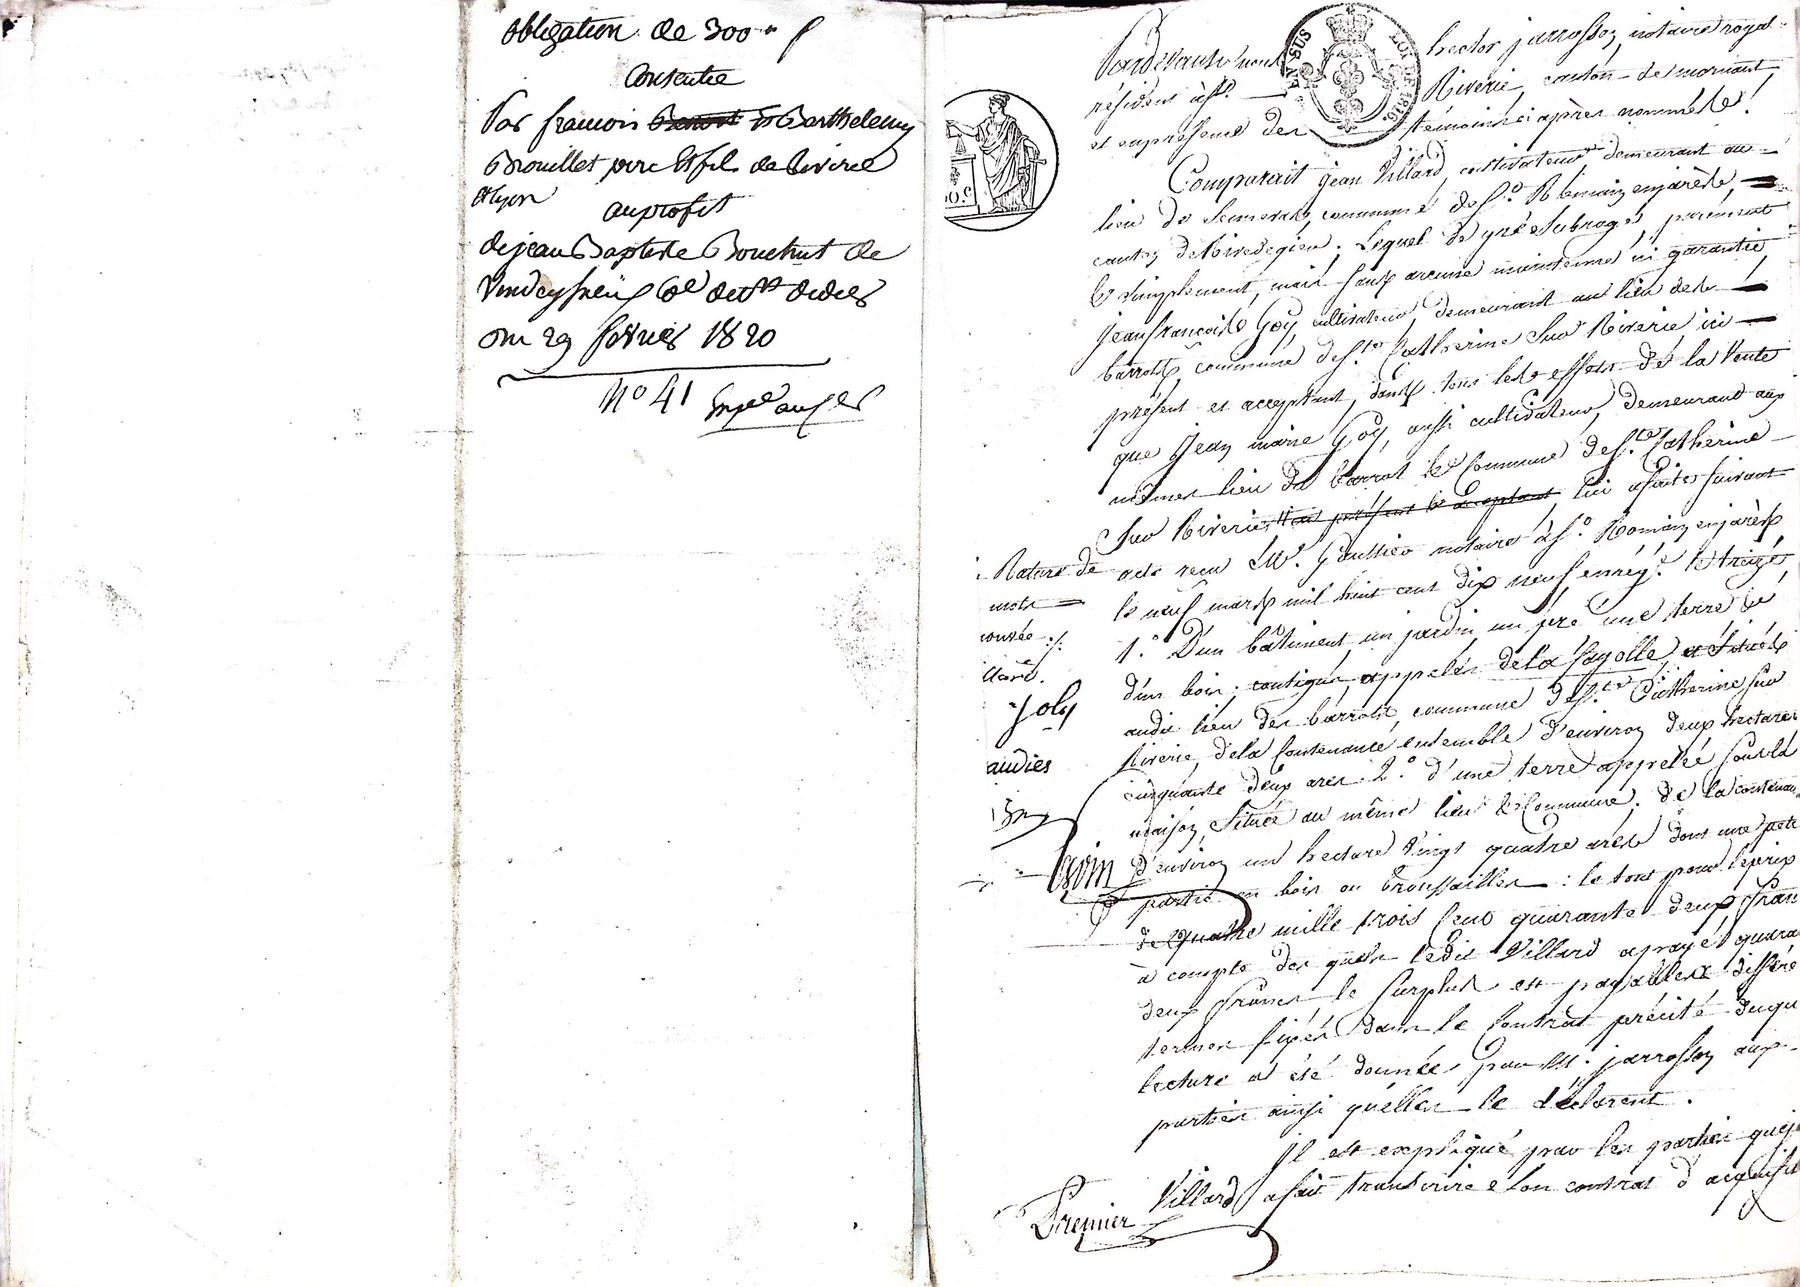 obligation de 300 f
Consentie
Par francois Benoit Barthelemy
Brouillet pere et fils de Riverie
et lyon
au profit
de jean Baptiste Bouchut de
du 29 fevrier 1820
N° 41
Pardevant nous hector jarrosson, notaire royal
résident à Riverie, canton de mornant,
et en présence des témoins ci après nommés.
Comparait jean Villard, cultivateur demeurant au
lieu de commune de St. Romain en jarêts,
canton de Rivedegier. Lequel de gré a subrogé, purement
& simplement, mais sans aucune maintenue ni garantie,
jean françois Goy, cultivateur, demeurant au lieu des
barrots, commune de Ste. Catherine Sur Riverie, ici
présent et acceptant, dans tous les effets de la Vente
que Jean marie Goy, aussi cultivateur, demeurant aux
mêmes lieu du barrot & Commune de Ste. Catherine
Sur Riverie ici présent & acceptant, lui a faite suivant
acte reçu Me. Gaultier notaire à St. Romain en jarêts
le neuf mars mil huit cent dix neuf, enrégé. le treize,
1.° D'un bâtiment, un jardin, un pré une terre &
d'un bois, contigus, appelés de la fayolle, et Situés
audit lieu des barrots, commune de Ste. Catherine Sur
Riverie, de la Contenance ensemble d'environ deux hectares
cinquante deux ares 2.° d'une terre appelée Sous la
maison, Située au même lieu & Commune, de la contenan
d'environ un hectare Vingt quatre ares dont une petite
partie en bois ou broussailles : le tout pour le prix
de quatre mille trois Cent quarante deux fran
à compte des quels ledit Villard a payé quara
deux francs, le Surplus est payable à différe
termes fixés dans le Contrat précité duqu
lecture a été donnée par Me. jarrosson aux
parties ainsi qu'elles le déclarent.
Il est expliqué par les parties que j
Villard a fait transcrire Son contrat d'acquisit
Rature de
mots
Joly
Premier